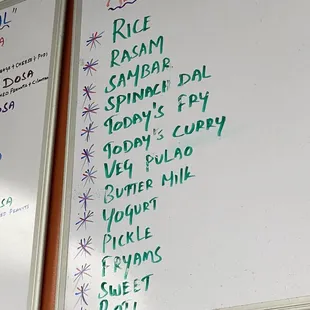 AL"
DOSA
OSA
SA
RICE
RASAM
SAMBAR
SPINACH DAL
TODAY'S FRY
TODAY'S CURRY
VEG PULAO
BUTTER MILK
YOGURT
PICKLE
FRYAMS
SWEET